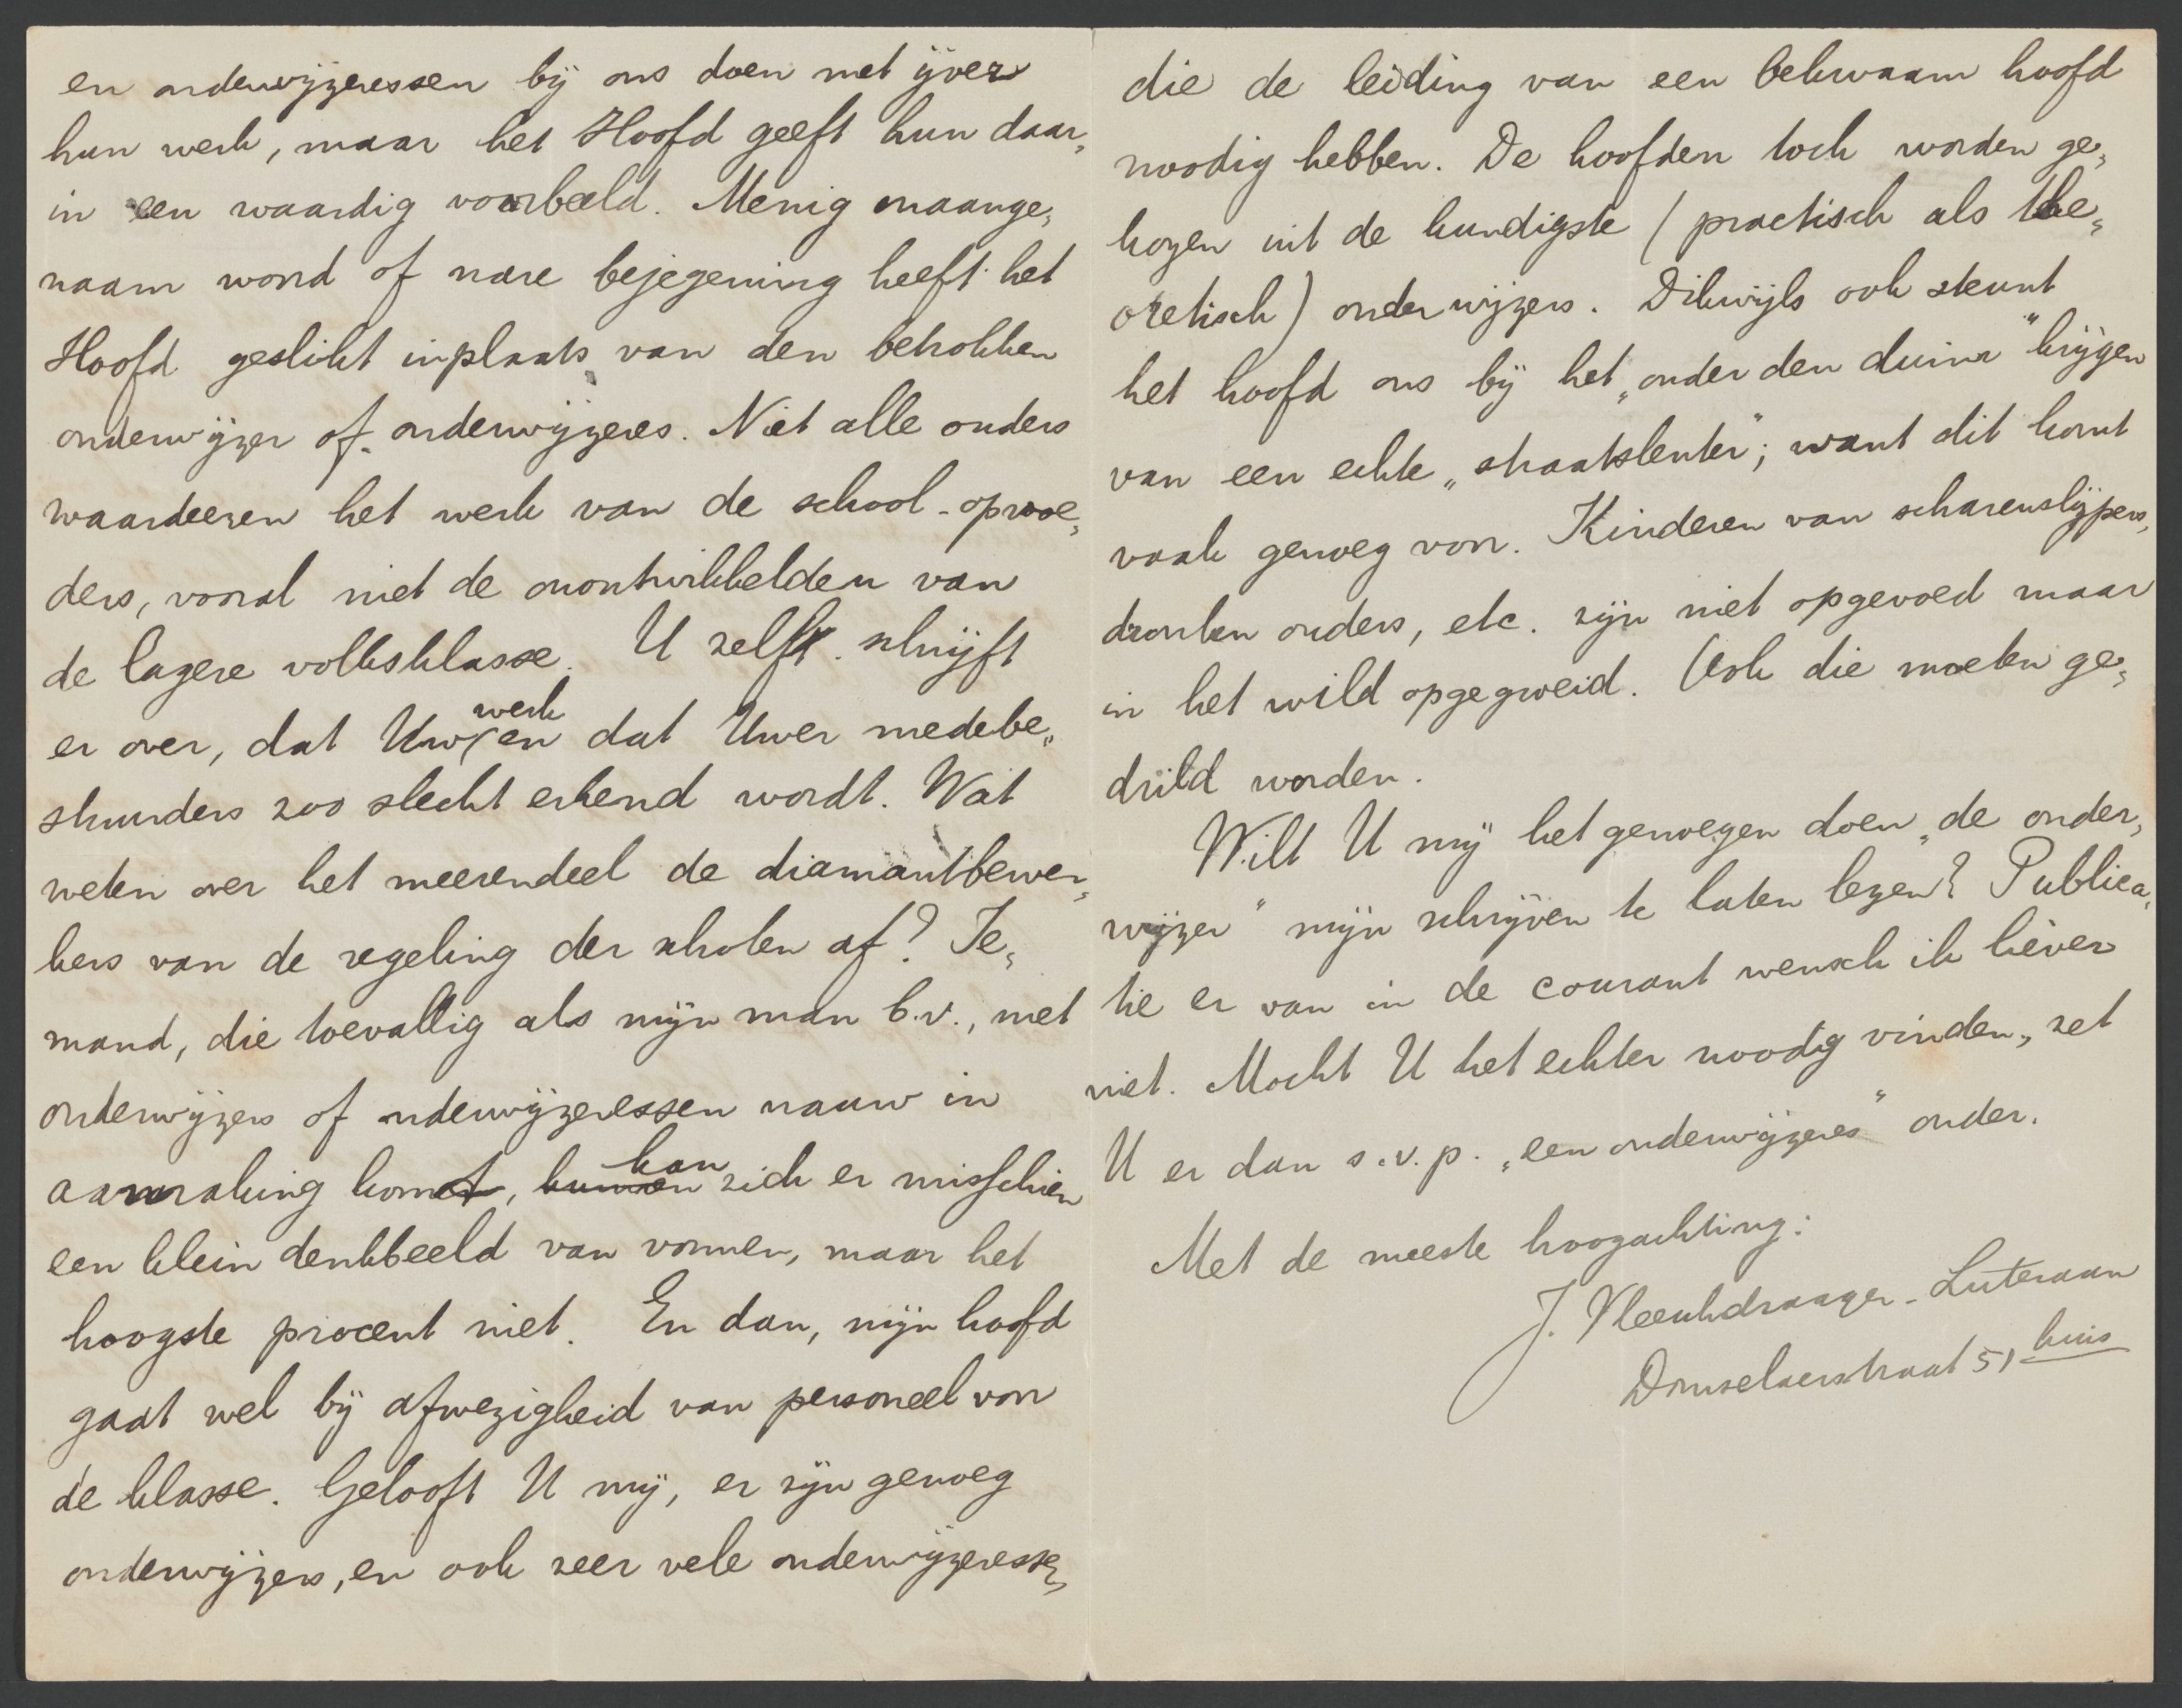 en onderwijzeressen bij ons doen met ijver
hun werk, maar het Hoofd geeft hun daar„
in een waardig voorbeeld. Menig onaange„
naam woord of nare bejegening heeft het
Hoofd geslikt inplaats van den betrokken
onderwijzer of onderwijzeres. Niet alle ouders
waardeeren het werk van de school-opvoe„
ders, vooral niet de onontwikkelden van
de lagere volksklasse. U zelf schrijft
er over, dat Uw werk en dat Uwer medebe„
stuurders zoo slecht erkend wordt. Wat
weten over het meerendeel de diamantbewer„
kers van de regeling der scholen af? Ie„
mand, die toevallig als mijn man b.v., met
onderwijzers of onderwijzeressen nauw in
aanraking komt, kunnen kan zich er misschien
een klein denkbeeld van vormen, maar het
hoogste procent niet. En dan, mijn hoofd
gaat wel bij afwezigheid van personeel voor
de klasse. Gelooft U mij, er zijn genoeg
onderwijzers, en ook zeer vele onderwijzeressen,
die de leiding van een bekwaam hoofd
noodig hebben. De hoofden toch worden ge„
kozen uit de kundigste (practisch als the„
oretisch) onderwijzers. Dikwijls ook steunt
het hoofd ons bij het „onder den duim" krijgen
van een echte „straatslenter"; want dit komt
vaak genoeg voor. Kinderen van scharenslijpers,
dronken ouders, etc. zijn niet opgevoed maar
in het wild opgegroeid. Ook die moeten ge„
drild worden.
Wilt U mij het genoegen doen „de onder„
wijzer" mijn schrijven te laten lezen? Publica„
tie er van in de courant wensch ik liever
niet. Mocht U het echter noodig vinden, zet
U er dan s.v.p. „een onderwijzeres" onder.
Met de meeste hoogachting:
J. Vleeschdraager-Luteraan
Domselaerstraat 51 huis